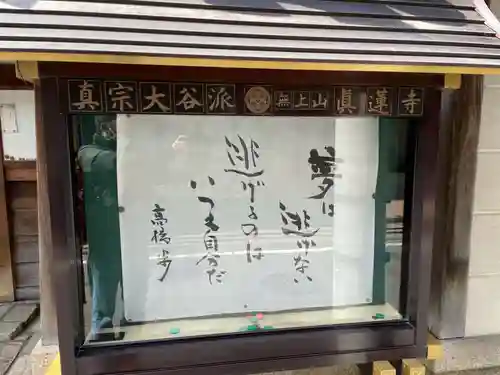 真宗大谷派 無上山 眞蓮寺
夢は
逃げない
逃げるのは
いつも自分だ
高橋歩